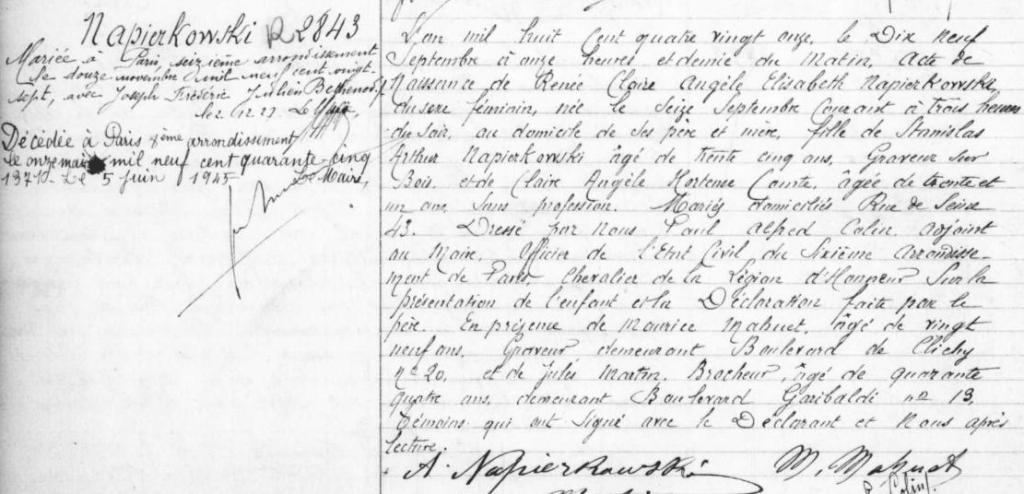 Napierkowski R 2843
Mariée à Paris, seizième arrondissement
le douze novembre mil neuf cent vingt-
sept, avec Joseph Frédéric Julien Bethenod
Le
Décédée à Paris 8ème arrondissement
le onze mai mil neuf cent quarante-cinq
Le 5 Juin 1945 Le Maire,
L'an mil huit cent quatre vingt onze, le Dix neuf
Septembre à onze heures et demie du Matin, Acte de
Naissance de Renée Claire Angèle Elisabeth Napierkowska
du sexe féminin, née le Seize Septembre Courant à trois heures
du Soir, au domicile de ses père et mère, fille de Stanislas
Arthur Napierkowski âgé de trente cinq ans, Graveur sur
Bois, et de Claire Angèle Hortense Comte, âgée de trente et
un ans, Sans profession. Mariés domiciliés Rue de Seine
43. Dressé par Nous Paul Alfred Colin, adjoint
au Maire, Officier de l'Etat Civil du Sixième Arrondisse-
ment de Paris, Chevalier de la Légion d'Honneur Sur la
présentation de l'enfant et la Déclaration faite par le
père. En présence de Maurice Mahuet, âgé de vingt
neuf ans, Graveur, demeurant Boulevard de Clichy
nº 20, et de Jules Martin, Brocheur, âgé de quarante
quatre ans, demeurant Boulevard Garibaldi nº 13
Témoins qui ont Signé avec le Déclarant et Nous après
lecture.
A. Napierkowski M. Mahuet
Colin